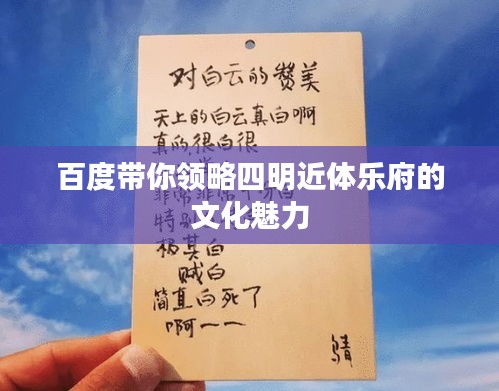 对白云的赞美
天上的白云真白啊
真的很白很
百度带你领略四明近体乐府的
文化魅力
特
极其白
贼白
简直白死了
啊——